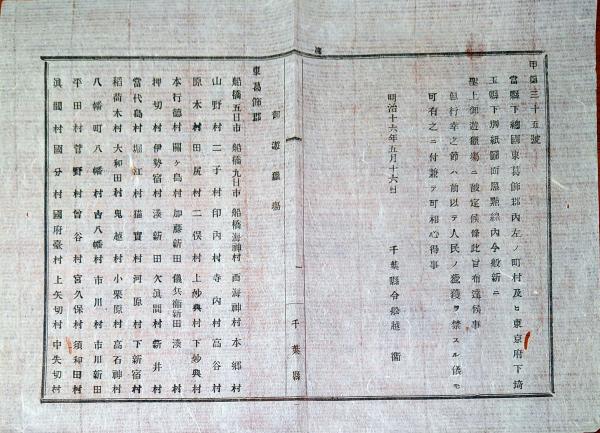 甲第三十五號
當縣下總國東葛飾郡內左ノ町村及ヒ東京府下埼
玉縣下別紙圖面黑點線內今般新ニ
聖上御遊獵場ニ被定候條此旨布達候事
但行幸之節ハ前以テ人民ノ獲ヲ禁スル儀モ
可有之ニ付兼テ可相心得事
明治十六年五月十六日
千葉縣令船越衞
御遊獵場
千葉縣
東葛飾郡
船橋五日市 船橋九日市 船橋海神村 西海神村 本鄕村
山野村 二子村 印內村 寺內村 高谷村
原木村 田尻村 二俣村 上妙典村 下妙典村
本行德村 關ヶ島村 加藤新田 儀兵衞新田 湊村
押切村 伊勢宿村 湊新田 欠眞間村 新井村
當代島村 堀江村 猫實村 河原村 下新宿村
稻荷木村 大和田村 鬼越村 小栗原村 高石神村
八幡町 八幡村 古八幡村 市川村 市川新田
平田村 菅野村 曾谷村 宮久保村 須和田村
眞間村 國分村 國府臺村 上矢切村 中矢切村